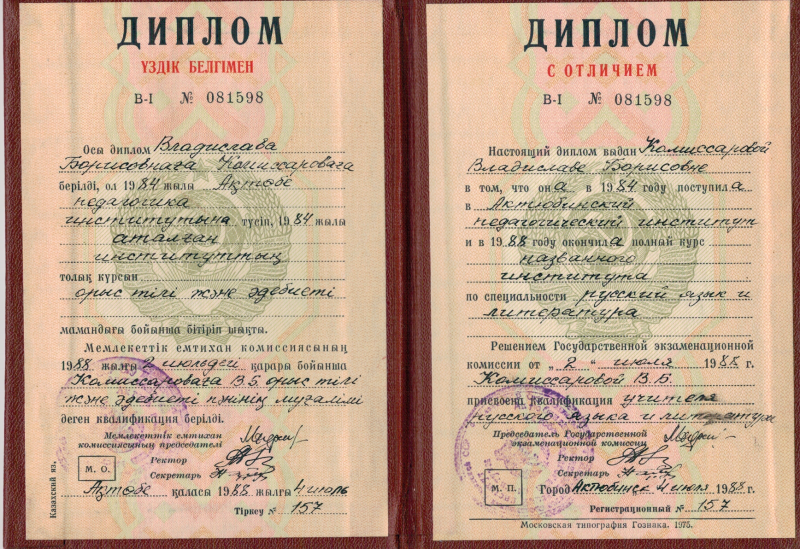 ДИПЛОМ
ҮЗДІК БЕЛГІМЕН
В-I № 081598
Осы диплом Владислава
Борисовнаға Комиссароваға
берілді, ол 1984 жылы Ақтөбе
педагогика
институтына түсіп, 1984 жылы
аталған
институттың
толық курсын
орыс тілі және әдебиеті
мамандығы бойынша бітіріп шықты.
Мемлекеттік емтихан комиссиясының
1988 жылғы 2 июльдегі қарары бойынша
Комиссароваға В.Б. орыс тілі
және әдебиеті пәнінің мұғалімі
деген квалификация берілді.
Мемлекеттік емтихан
комиссиясының председателі
Ректор
Секретарь
М. О.
Ақтөбе қаласы 1988 жылғы 4 июль
Тіркеу № 157
Казахский яз.
ДИПЛОМ
С ОТЛИЧИЕМ
В-I № 081598
Настоящий диплом выдан Комиссаровой
Владиславе Борисовне
в том, что она в 1984 году поступила
в Актюбинский
педагогический институт
и в 1988 году окончила полный курс
названного
института
по специальности русский язык и
литература
Решением Государственной экзаменационной
комиссии от „2“ июля 1988 г.
Комиссаровой В.Б.
присвоена квалификация учителя
русского языка и литературы
Председатель Государственной
экзаменационной комиссии
Ректор
Секретарь
М. П.
Город Актюбинск 4 июля 1988 г.
Регистрационный № 157
Московская типография Гознака. 1975.